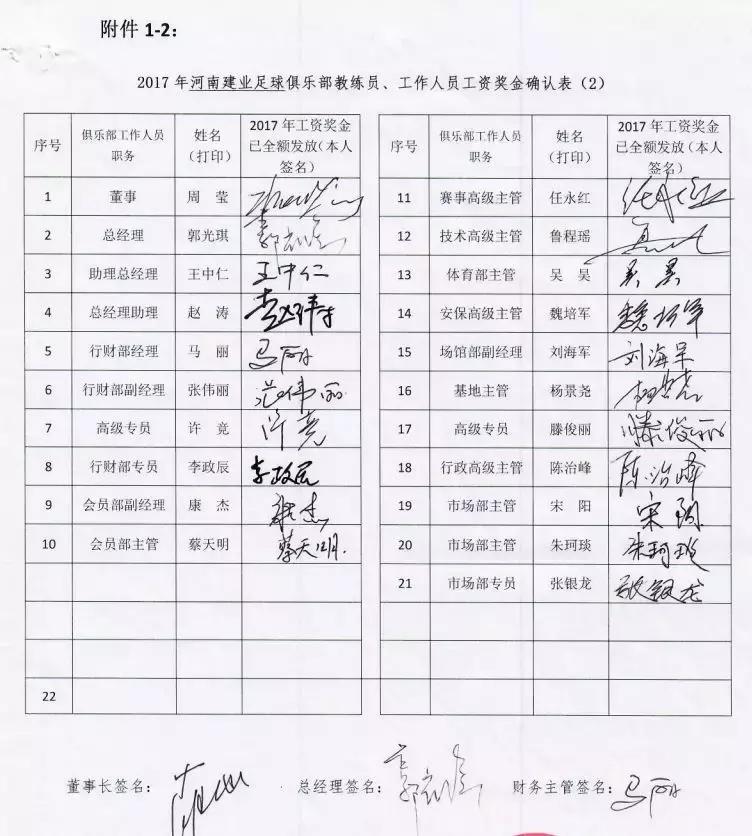 附件 1-2：
2017 年河南建业足球俱乐部教练员、工作人员工资奖金确认表（2）
序号 俱乐部工作人员职务 姓名（打印） 2017 年工资奖金已全额发放（本人签名）
1 董事 周 莹
2 总经理 郭光琪 郭光琪
3 助理总经理 王中仁 王中仁
4 总经理助理 赵 涛
5 行财部经理 马 丽 马丽
6 行财部副经理 张伟丽
7 高级专员 许 竞 许竞
8 行财部专员 李政辰 李政辰
9 会员部副经理 康 杰 康杰
10 会员部主管 蔡天明 蔡天明
22
序号 俱乐部工作人员职务 姓名（打印） 2017 年工资奖金已全额发放（本人签名）
11 赛事高级主管 任永红 任永红
12 技术高级主管 鲁程瑶
13 体育部主管 吴 昊 吴昊
14 安保高级主管 魏培军 魏培军
15 场馆部副经理 刘海军 刘海军
16 基地主管 杨景尧 杨景尧
17 高级专员 滕俊丽 滕俊丽
18 行政高级主管 陈治峰 陈治峰
19 市场部主管 宋 阳 宋阳
20 市场部主管 朱珂琰 朱珂琰
21 市场部专员 张银龙 张银龙
董事长签名： 总经理签名：郭光琪 财务主管签名：马丽